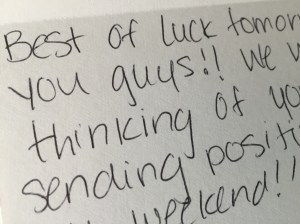 Best of luck tomor
you guys!! We w
thinking of yo
sending positi
weekend!!